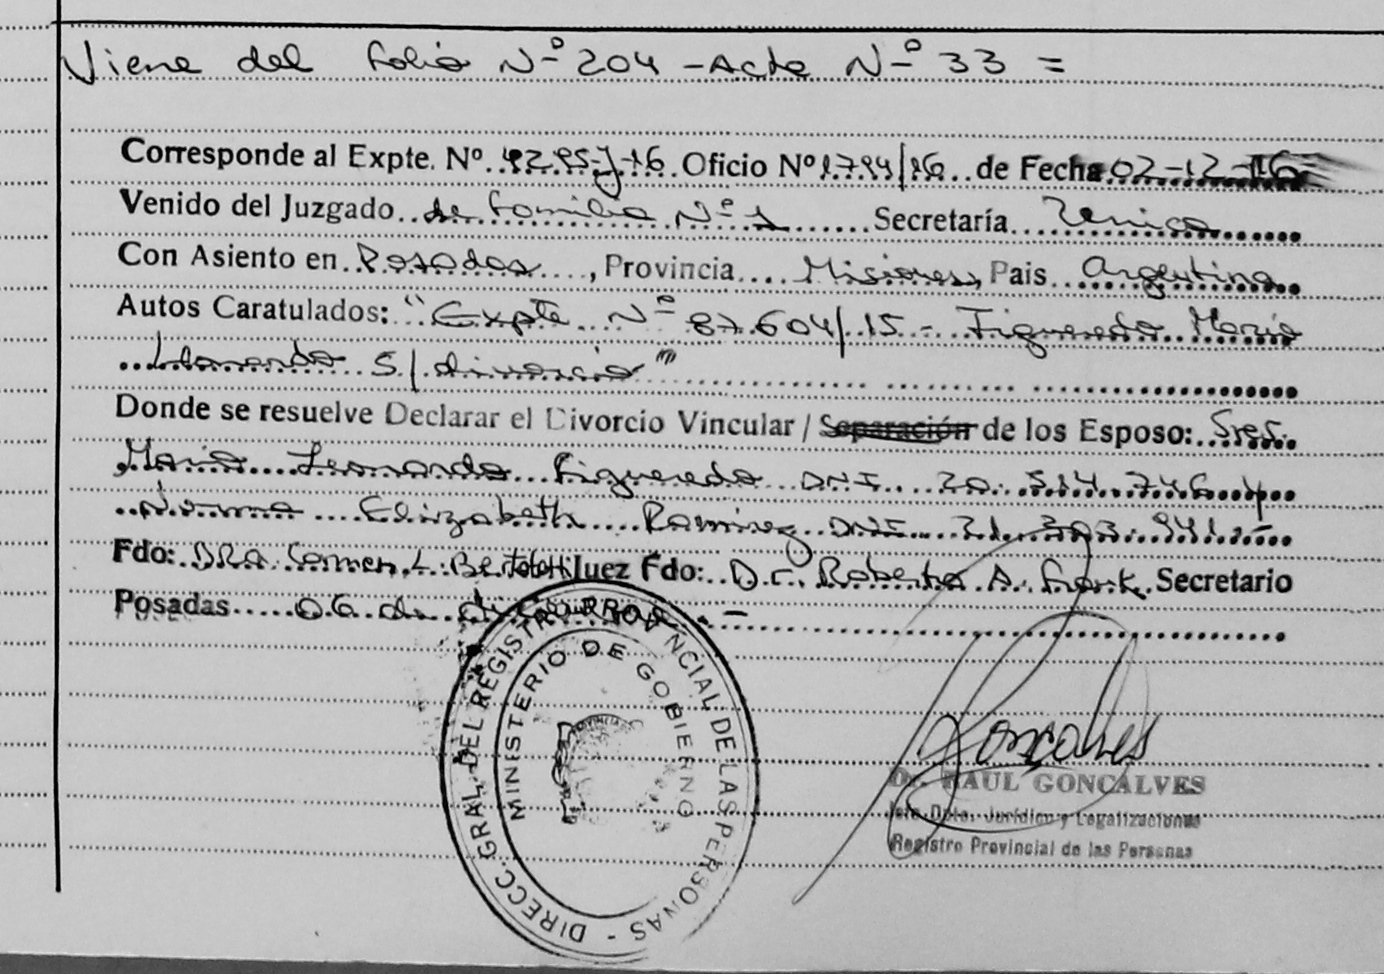 Viene del folio Nº 204 - Acta Nº 33 =
Corresponde al Expte. Nº 4295-J-16 Oficio Nº 1794/16 de Fecha 02-12-16
Venido del Juzgado de Familia Nº 1 Secretaría Unica
Con Asiento en Posadas, Provincia Misiones, Pais Argentina
Autos Caratulados: "Expte Nº 87.604/15 - Figueredo Mario
Leonardo S/ divorcio"
Donde se resuelve Declarar el Divorcio Vincular / Separación de los Esposo: Sres.
Mario Leonardo Figueredo DNI 20.514.746 y
Norma Elizabeth Ramirez DNI 21.303.941.-
Fdo: DRA. Carmen L. Bertolotti Juez Fdo: Dr. Roberto A. Frank Secretario
Posadas 06 de
DIRECC. GRAL. DEL REGISTRO PROVINCIAL DE LAS PERSONAS -
MINISTERIO DE GOBIERNO
Goncalves
Dr. RAUL GONCALVES
Jefe Dpto. Jurídico y Legalizaciones
Registro Provincial de las Personas